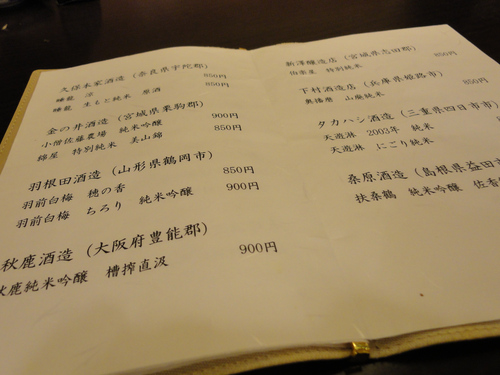 久保本家酒造（奈良県宇陀郡）
睡龍 涼 850円
睡龍 生もと純米 原酒 850円
金の井酒造（宮城県栗駒郡）
小僧佐藤農場 純米吟醸 900円
綿屋 特別純米 美山錦 850円
羽根田酒造（山形県鶴岡市）
羽前白梅 穂の香 850円
羽前白梅 ちろり 純米吟醸 900円
秋鹿酒造（大阪府豊能郡）
秋鹿純米吟醸 槽搾直汲 900円
新澤醸造店（宮城県志田郡）
伯楽星 特別純米 850円
下村酒造店（兵庫県姫路市）
奥播磨 山廃純米 850円
タカハシ酒造（三重県四日市市）
天遊琳 2003年 純米
天遊琳 にごり純米
桑原酒造（島根県益田
扶桑鶴 純米吟醸 佐香